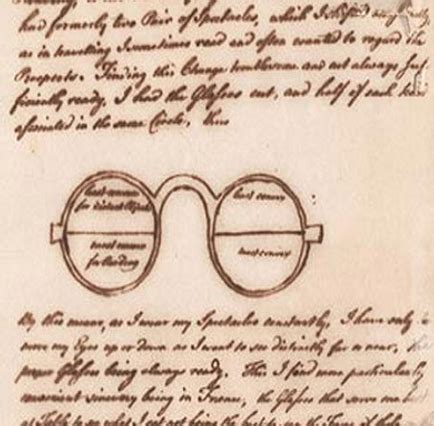 had formerly two Pair of Spectacles, which I shifted
as in travelling I sometimes read and often wanted to regard the
Prospects. Finding this Change troublesome and not always suf
ficiently ready, I had the Glasses cut, and half of each kind
associated in the same Circle, thus
least convex
for distant Objects
least convex
most convex
for Reading
most convex
By this means, as I wear my Spectacles constantly, I have only to
move my Eyes up or down as I want to see distinctly far or near, the
proper Glasses being always ready. This I find more particularly
convenient since my being in France, the Glasses that serve me best
at Table to see what I eat not being the best to see the Faces of those